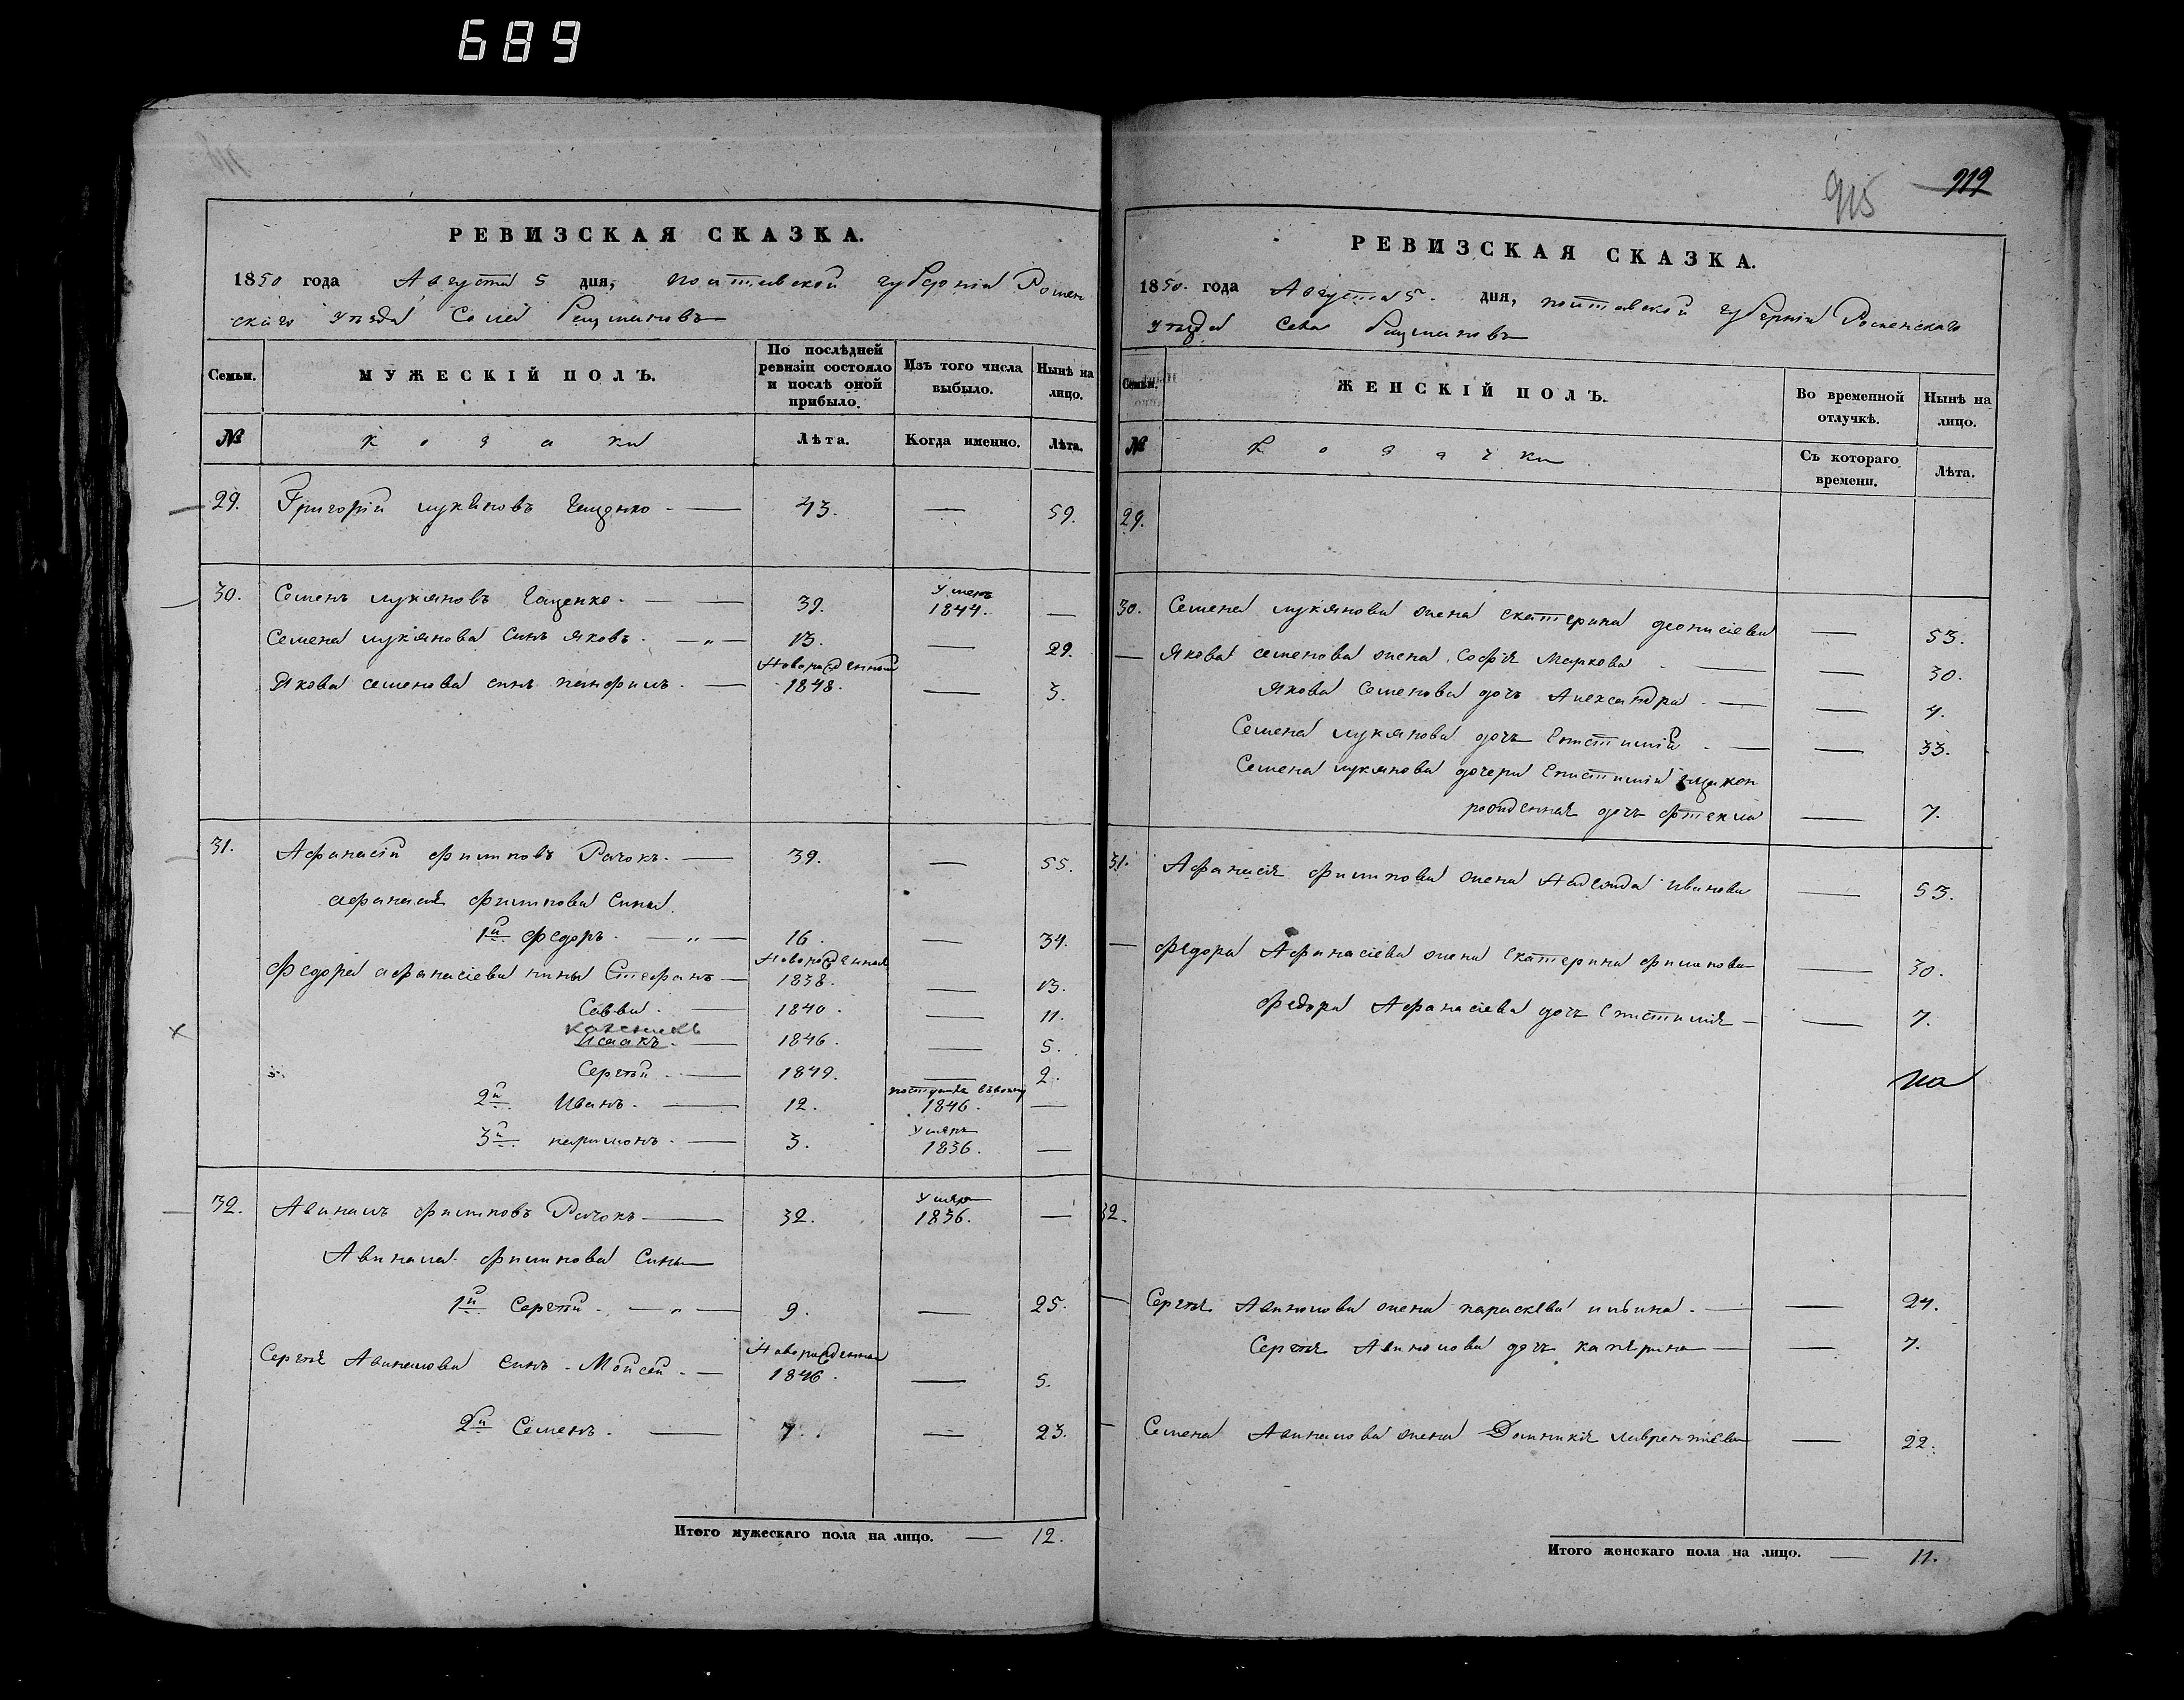 689
РЕВИЗСКАЯ СКАЗКА.
1850 года Августа 5 дня, Полтавской губерніи Ромен
скаго уезда Села
МУЖЕСКІЙ ПОЛЪ.
Семьи.
По послѣдней ревизіи состояло и послѣ оной прибыло.
Изъ того числа выбыло.
Нынѣ на лицо.
№ козаки Лѣта. Когда именно. Лѣта.
29. Григорій Лукяновъ — 43. — 59.
30. Семенъ Лукяновъ Гащенко — 39. Умеръ 1844. —
Семена Лукянова синъ Яковъ. — 13. — 29.
Якова Семенова синъ Панфилъ. — Новорожденный 1848. — 3.
31. Афанасій Филиповъ Рачокъ. — 39. — 55.
Афанасія Филипова Сины
1й Федоръ. — 16. — 34.
Федора Афанасіева сины Стефанъ — Новорожденныя 1838. — 13.
Савва. — 1840. — 11.
Исаакъ. — 1846. — 5.
Сергѣй. — 1849. — 2.
2й Иванъ. — 12. 1846. —
3й Паримонъ. — 3. Умеръ 1836. —
32. Филиповъ Рачокъ — 32. Умеръ 1836. —
Филипова Сины
1й Сергѣй. — 9. — 25.
Сергѣя синъ Мойсей. — Новорожденный 1846. — 5.
2й Семенъ. — 7. — 23.
Итого мужескаго пола на лицо. — 12.
915 919
РЕВИЗСКАЯ СКАЗКА.
1850. года Августа 5. дня, Полтавской губерніи Роменскаго
уезда Села
Семьи.
ЖЕНСКІЙ ПОЛЪ.
Во временной отлучкѣ.
Нынѣ на лицо.
№ Козачки Съ котораго времени. Лѣта.
29.
30. Семена Лукянова жена Екатерина Деонисіева — 53.
Якова Семенова жена Софія Маркова — 30.
Якова Семенова дочь Александра. — 4.
Семена Лукянова дочь Епистимія. — 33.
Семена Лукянова дочери Епистиміи
рожденная дочь — 7.
31. Афанасія Филипова жена Надежда Иванова — 53.
Федора Афанасіева жена Екатерина Филипова — 30.
Федора Афанасіева дочь Епистимія — 7.
32.
Сергѣя жена Параскева Ильина. — 24.
Сергѣя дочь — 7.
Семена жена Домникія Лаврентіева — 22.
Итого женскаго пола на лицо. — 11.